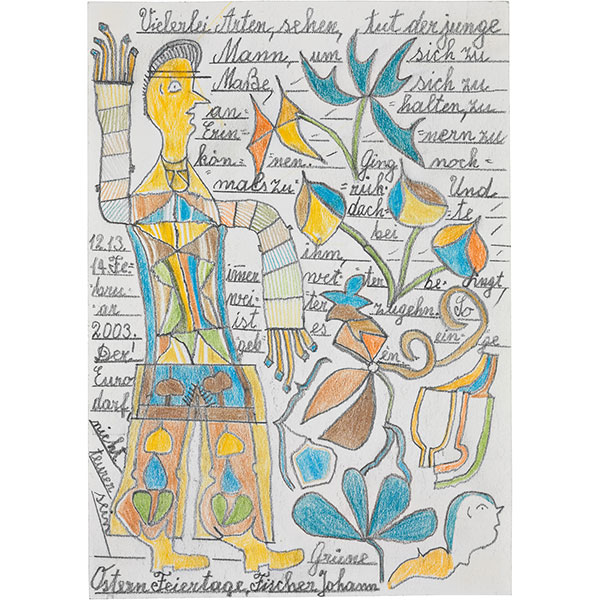 Vielerlei Arten, sehen, tut der junge
Mann, um sich zu
Maße, sich zu
an halten, zu
Erin- nern zu
kön- nen. Ging noch-
mals zu- rük Und
dach- te
bei
12.13. ihm,
14. Fe- imer wei- ter be- ugt,
bru- wei- ter zugehn. So
ar ist es ein-
2003. geb- en ge
Der!
Euro
darf,
nicht
teurer
sein
Grüne
Ostern Feiertage, Fischer Johann